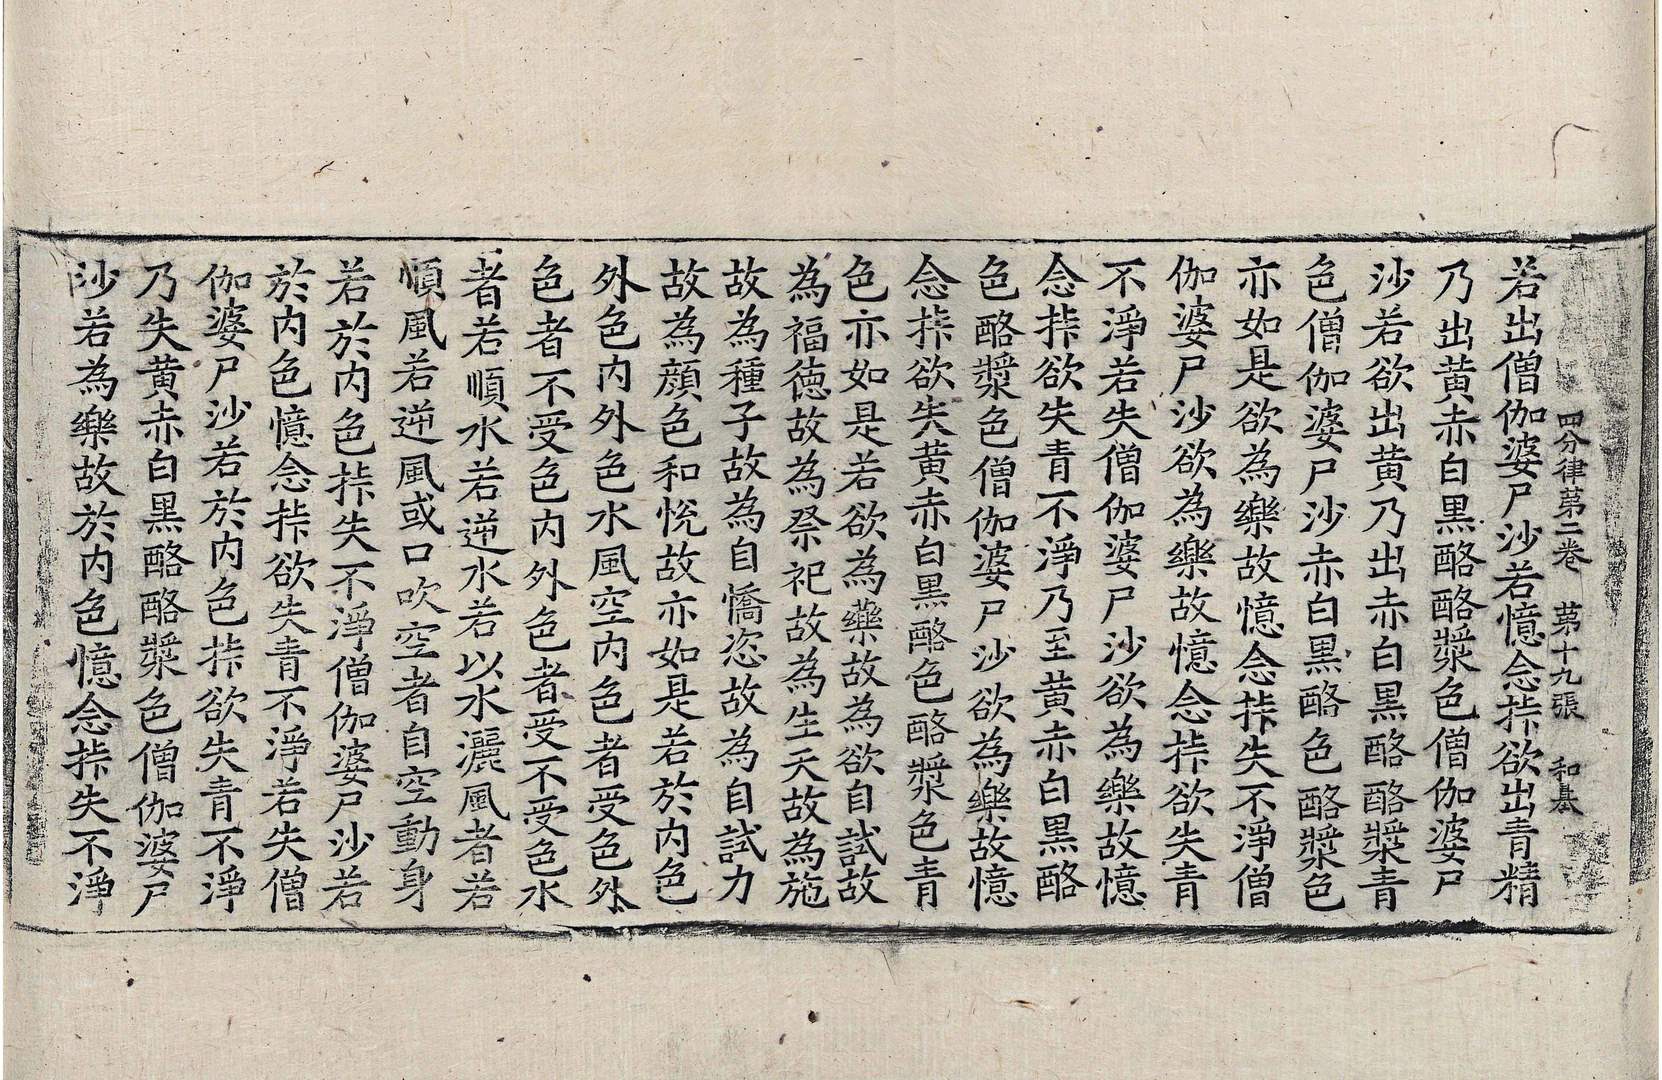 四分律第二卷 第十九張 和基
若出僧伽婆尸沙若憶念挊欲出青精
乃出黄赤白黒酪酪漿色僧伽婆尸
沙若欲出黄乃出赤白黒酪酪漿青
色僧伽婆尸沙赤白黒酪色酪漿色
亦如是欲為樂故憶念挊失不淨僧
伽婆尸沙欲為樂故憶念挊欲失青
不淨若失僧伽婆尸沙欲為樂故憶
念挊欲失青不淨乃至黄赤白黒酪
色酪漿色僧伽婆尸沙欲為樂故憶
念挊欲失黄赤白黒酪色酪漿色青
色亦如是若欲為藥故為欲自試故
為福徳故為祭祀故為生天故為施
故為種子故為自憍恣故為自試力
故為顔色和悅故亦如是若於内色
外色内外色水風空内色者受色外
色者不受色内外色者受不受色水
者若順水若逆水若以水灑風者若
順風若逆風或口吹空者自空動身
若於内色挊失不淨僧伽婆尸沙若
於内色憶念挊欲失青不淨若失僧
伽婆尸沙若於内色挊欲失青不淨
乃失黄赤白黒酪酪漿色僧伽婆尸
沙若為樂故於内色憶念挊失不淨